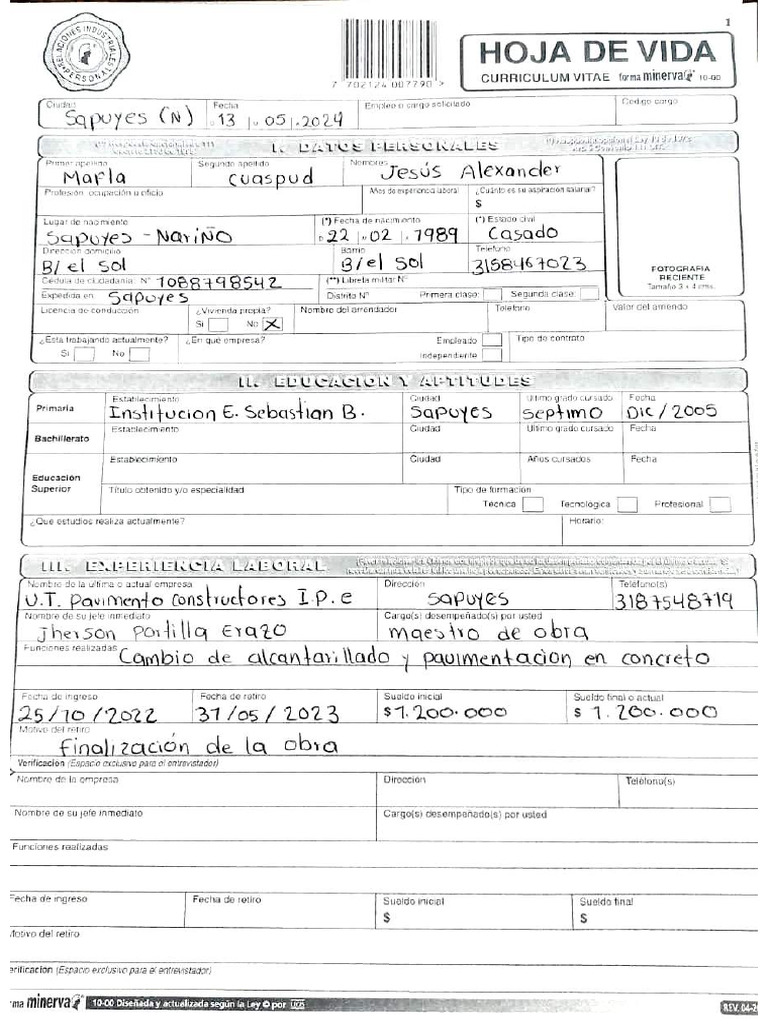 1
RELACIONES INDUSTRIALES
PERSONAL
7 702124 007790 >
HOJA DE VIDA
CURRICULUM VITAE forma minerva 10-00
Ciudad Fecha Empleo o cargo solicitado Código cargo
Sapuyes (N) D 13 M 05 A 2024
I. DATOS PERSONALES
Primer apellido Segundo apellido Nombres
Mafla Cuaspud Jesús Alexander
Profesión, ocupación u oficio Años de experiencia laboral ¿Cuánto es su aspiración salarial?
$
Lugar de nacimiento (*) Fecha de nacimiento (*) Estado civil
Sapuyes - Nariño D 22 M 02 A 1989 Casado
Dirección domicilio Barrio Teléfono
B/ el Sol B/ el Sol 3158467023
Cédula de ciudadanía: N° 1088798542 (**) Libreta militar N°
Expedida en Sapuyes Distrito N° Primera clase: Segunda clase:
FOTOGRAFIA
RECIENTE
Tamaño 3 x 4 cms.
Licencia de conducción ¿Vivienda propia? Nombre del arrendador Teléfono Valor del arriendo
Si No X
¿Está trabajando actualmente? ¿En qué empresa? Empleado Tipo de contrato
Si No Independiente
II. EDUCACION Y APTITUDES
Primaria Establecimiento Ciudad Ultimo grado cursado Fecha
Institucion E. Sebastian B. Sapuyes septimo Dic / 2005
Bachillerato Establecimiento Ciudad Ultimo grado cursado Fecha
Educación Superior Establecimiento Ciudad Años cursados Fecha
Título obtenido y/o especialidad Tipo de formación
Técnica Tecnológica Profesional
¿Que estudios realiza actualmente? Horario:
III. EXPERIENCIA LABORAL
Nombre de la última o actual empresa Dirección Teléfono(s)
U.T. Pavimento Constructores I.P.e Sapuyes 3187548719
Nombre de su jefe inmediato Cargo(s) desempeñado(s) por usted
Jherson Portilla Erazo maestro de obra
Funciones realizadas Cambio de alcantarillado y pavimentacion en concreto
Fecha de ingreso Fecha de retiro Sueldo inicial Sueldo final o actual
25/10/2022 31/05/2023 $1.200.000 $ 1.200.000
Motivo del retiro
finalización de la obra
Verificación (Espacio exclusivo para el entrevistador)
Nombre de la empresa Dirección Teléfono(s)
Nombre de su jefe inmediato Cargo(s) desempeñado(s) por usted
Funciones realizadas
Fecha de ingreso Fecha de retiro Sueldo inicial Sueldo final
$ $
Motivo del retiro
erificación (Espacio exclusivo para el entrevistador)
rma minerva 10-00 Diseñada y actualizada según la Ley © por
REV. 04-2